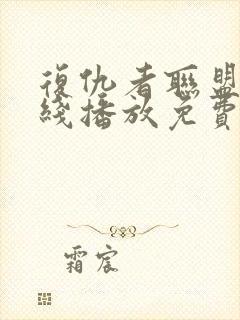 復仇者聯盟
綫播放免費
霜宸